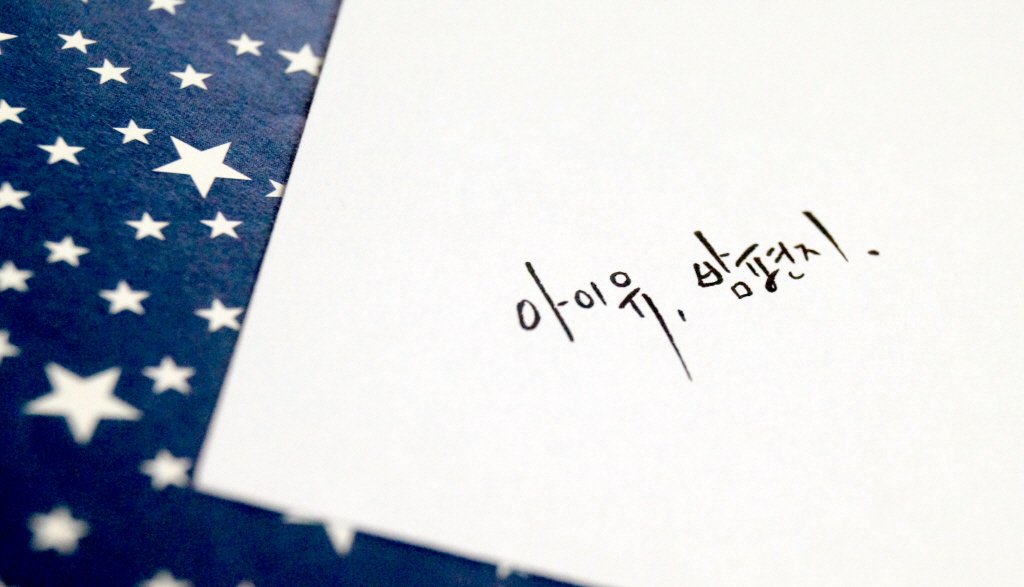 아이유, 밤편지.